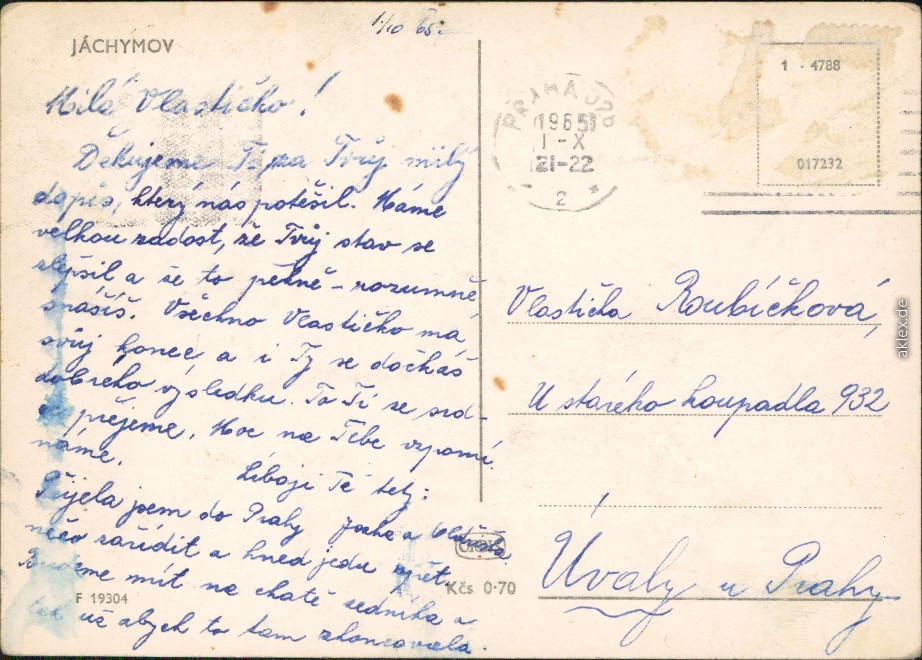 1/10 65.
JÁCHYMOV
Milá Vlastičko!
Děkujeme Ti za Tvůj milý
dopis, který nás potěšil. Máme
velkou radost, že Tvůj stav se
zlepšil a že to pěkně - rozumně
snášíš. Všechno Vlastičko má
svůj konec a i Ty se dočkáš
dobrého výsledku. To Ti se srd-
přejeme. Moc na Tebe vzpomí-
náme.
Líbají Tě tety:
Přijela jsem do Prahy
něco zařídit a hned jedu zpět.
Budeme mít na chatě sedníka a
tak už abych to tam zkoncovala.
F 19304
Kčs 0·70
PRAHA 026
1965
1-X
21-22
2
1 - 4788
017232
Vlastička Roubíčková,
U starého koupadla 932
Úvaly u Prahy
aklex.de